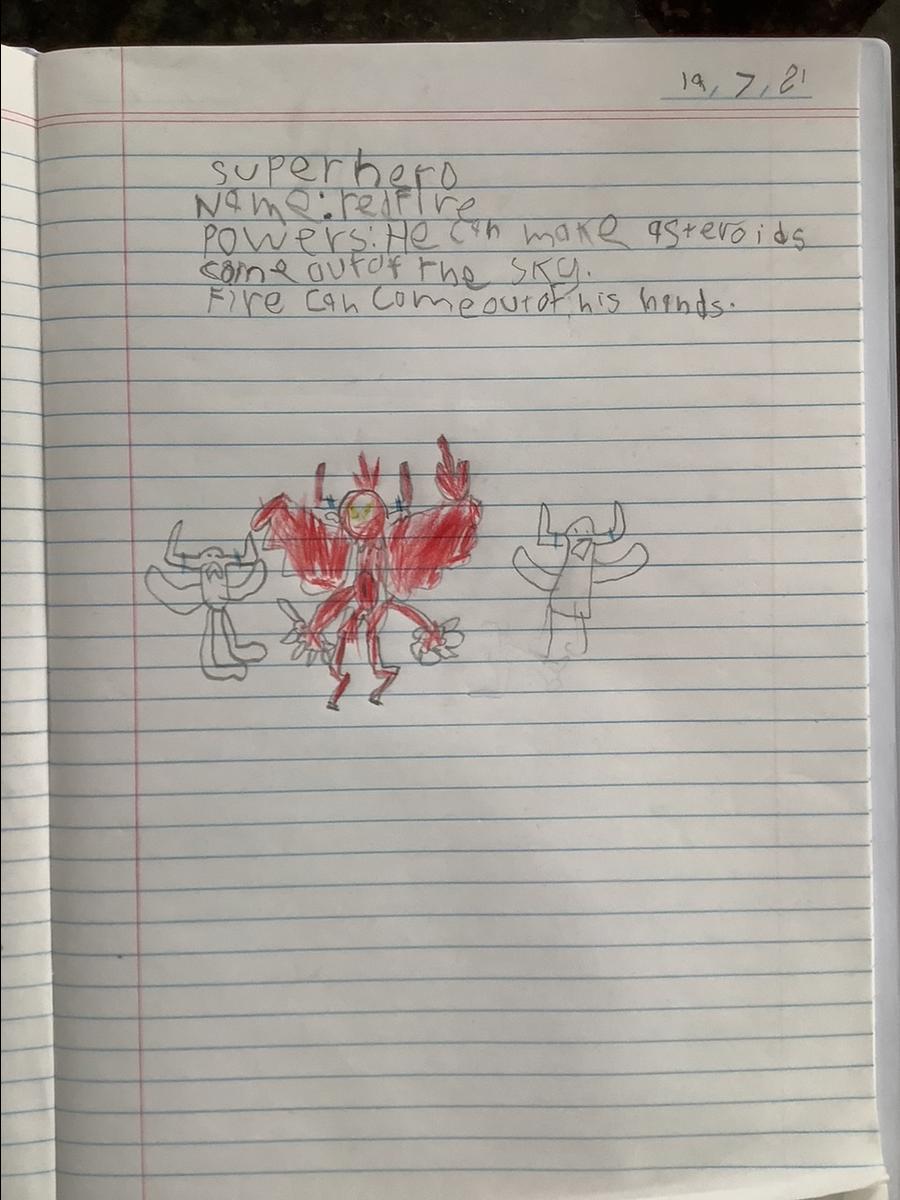 19, 7, 21
superhero
Name: redfire
Powers: He can make asteroids
come out of the sky.
Fire can come out of his hands.